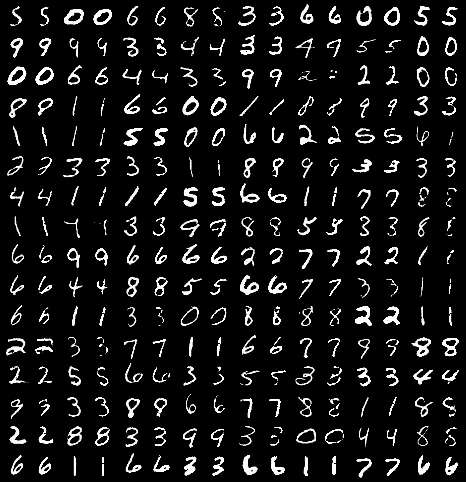 5 5 0 0 6 6 8 8 3 3 6 6 0 0 5 5
9 9 9 9 3 3 4 4 3 3 4 9 5 5 0 0
0 0 6 6 4 4 3 3 9 9 2 2 2 0 0
8 8 1 1 6 6 0 0 1 1 8 8 9 9 3 3
1 1 1 1 5 5 0 0 6 6 2 2 5 5 6 1
2 2 3 3 3 3 1 1 8 8 9 9 3 3 3 3
4 4 1 1 1 1 5 5 6 6 1 1 7 7 8 8
1 1 4 3 3 9 9 8 8 5 5 3 3 8 8
6 6 9 9 6 6 6 6 2 2 7 7 2 2 1 1
6 6 4 4 8 8 5 5 6 6 7 7 3 3 1 1
6 6 1 1 3 3 0 0 8 8 8 8 2 2 1 1
2 2 3 3 7 7 1 1 6 6 7 7 9 9 8 8
2 2 5 5 6 6 3 3 5 5 3 3 3 3 4 4
9 9 3 3 8 8 6 6 7 7 8 8 1 1 8 8
2 2 8 8 3 3 9 9 3 3 0 0 4 4 8 8
6 6 1 1 6 6 3 3 6 6 1 1 7 7 6 6